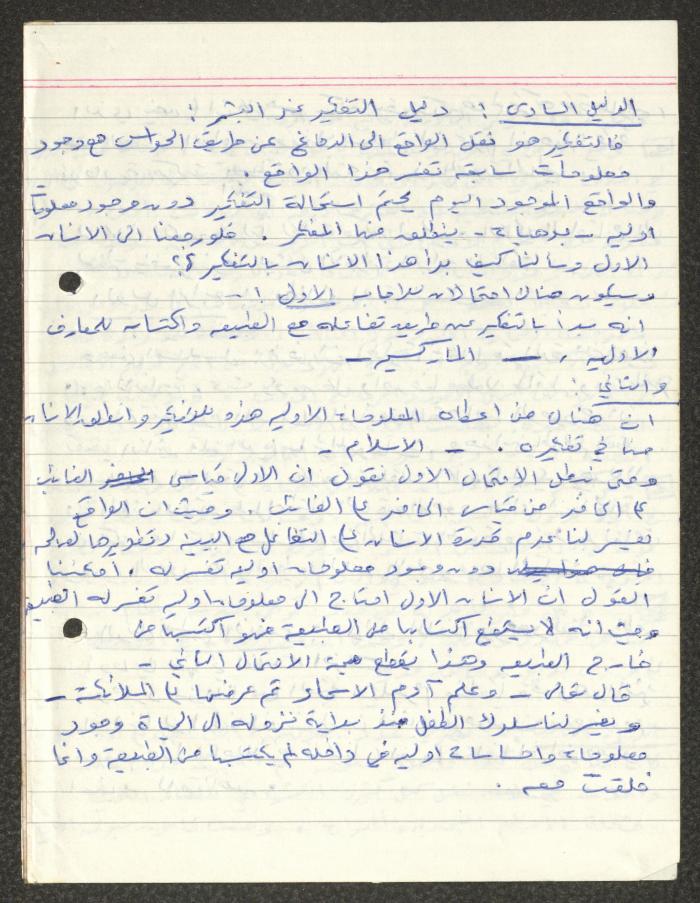 الدليل السادس : دليل التفكير عند البشر :
فالتفكير هو نقل الواقع الى الدماغ عن طريق الحواس مع وجود
معلومات سابقة تفسر هذا الواقع .
والواقع الموجود اليوم يحتم استحالة التفكير دون وجود معلومات
اولية - بدهيات - ينطلق منها المفكر . فلو رجعنا الى الانسان
الاول وسألنا كيف بدأ هذا الانسان بالتفكير ؟؟
وسيكون هناك احتمالان للاجابه الاول :-
انه بدأ بالتفكير عن طريق تفاعله مع الطبيعه واكتسابه للمعارف
الاوليه . - الماركسيه -
والثاني :
ان هنالك من اعطاه المعلومات الاوليه هذه للتفكير وانطلق الانسان
منها في تفكيره . - الاسلام -
وحتى نبطل الاحتمال الاول نقول ان الاول قياس الغائب
على الحاضر من قياس الحاضر على الغائب . وحيث ان الواقع
يفسر لنا عدم قدرة الانسان على التفاعل مع البيئة وتطويرها لصالحه
دون وجود معلومات اوليه تفسر له . امكننا
القول ان الانسان الاول احتاج الى معلومات اوليه تفسر له الطبيعه
وحيث انه لا يستطيع اكتسابها من الطبيعة فهو اكتسبها من
خارج الطبيعه وهذا يقطع صحة الاحتمال الثاني -
قال تعالى - وعلم آدم الاسماء ثم عرضها على الملائكة -
ويفسر لنا سلوك الطفل منذ بداية نزوله الى الحياة وجود
معلومات واحساسات اوليه في داخله لم يكتسبها من الطبيعة وانما
خلقت معه .